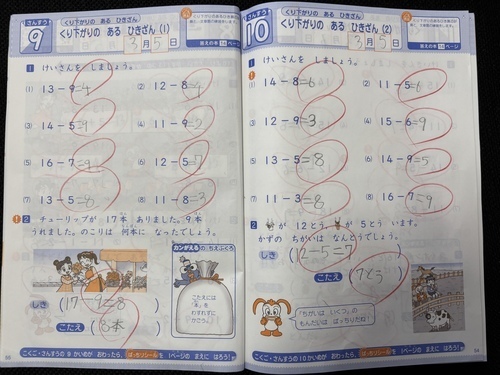 さんすう 9
くり下がりの ある ひきざん
くり下がりの ある ひきざん (1)
3月5日
答えの本 14 ページ
1 けいさんを しましょう。
(1) 13-9=4
(2) 12-8=4
(3) 14-5=9
(4) 11-9=2
(5) 16-7=9
(6) 12-5=7
(7) 13-5=8
(8) 11-8=3
2 チューリップが 17本 ありました。9本
うれました。のこりは 何本に なったでしょう。
カンがえる の ちえぶくろ
こたえには
「本」を
わすれずに
かこう。
しき (17-9=8)
こたえ (8本)
こくご・さんすうの 9 かいめが おわったら、 を 1ページの まえに はろう!
さんすう 10
くり下がりの ある ひきざん
くり下がりの ある ひきざん (2)
3月5日
答えの本 14 ページ
1 けいさんを しましょう。
(1) 14-8=6
(2) 11-5=6
(3) 12-9=3
(4) 15-6=9
(5) 13-5=8
(6) 14-9=5
(7) 11-3=8
(8) 16-7=9
2 が 12とう、 が 5とう います。
かずの ちがいは なんとうでしょう。
しき (12-5=7)
こたえ (7とう)
「ちがいは いくつ」の
もんだいは ばっちりだね!
こくご・さんすうの 10 かいめが おわったら、 を 1ページの まえに はろう!